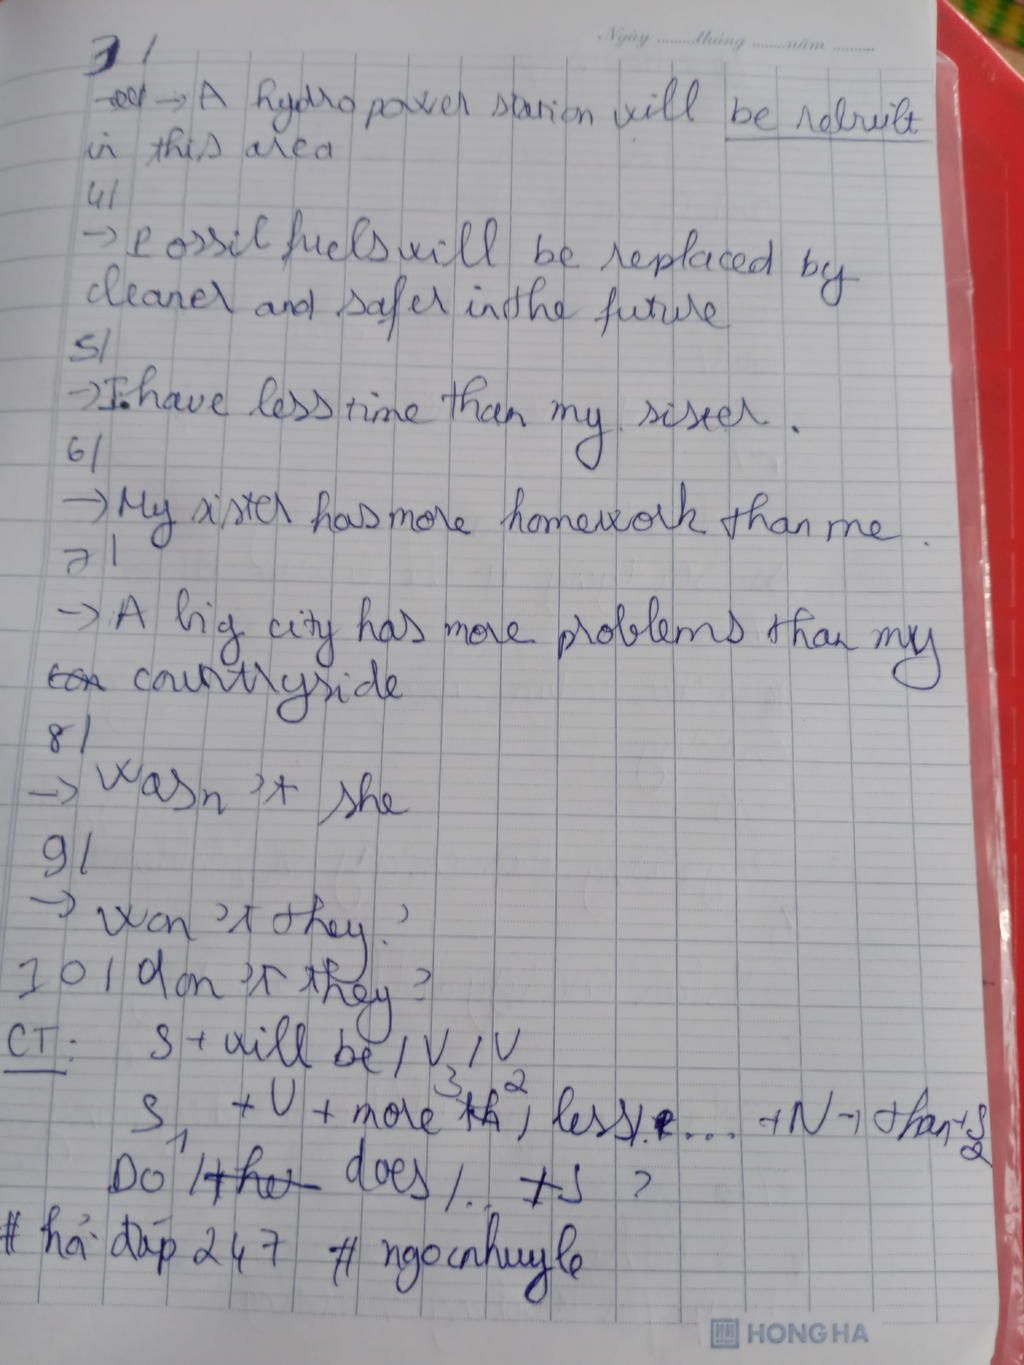 Ngày ........ tháng ....... năm ........
3/
→ A hydro power station will be rebruilt
in this area
4/
→ Fossil fuels will be replaced by
cleaner and safer in the future
5/
→ I have less time than my sister.
6/
→ My sister has more homework than me.
7/
→ A big city has more problems than my
countryside
8/
→ Wasn't she
9/
→ Won't they?
10/ don't they?
CT: S + will be / V3 / V2
S1 + V + more, less, ... + N + than + S2
Do / does /.. + S ?
# hỏi đáp 247 # ngocnhuyle
HONG HA